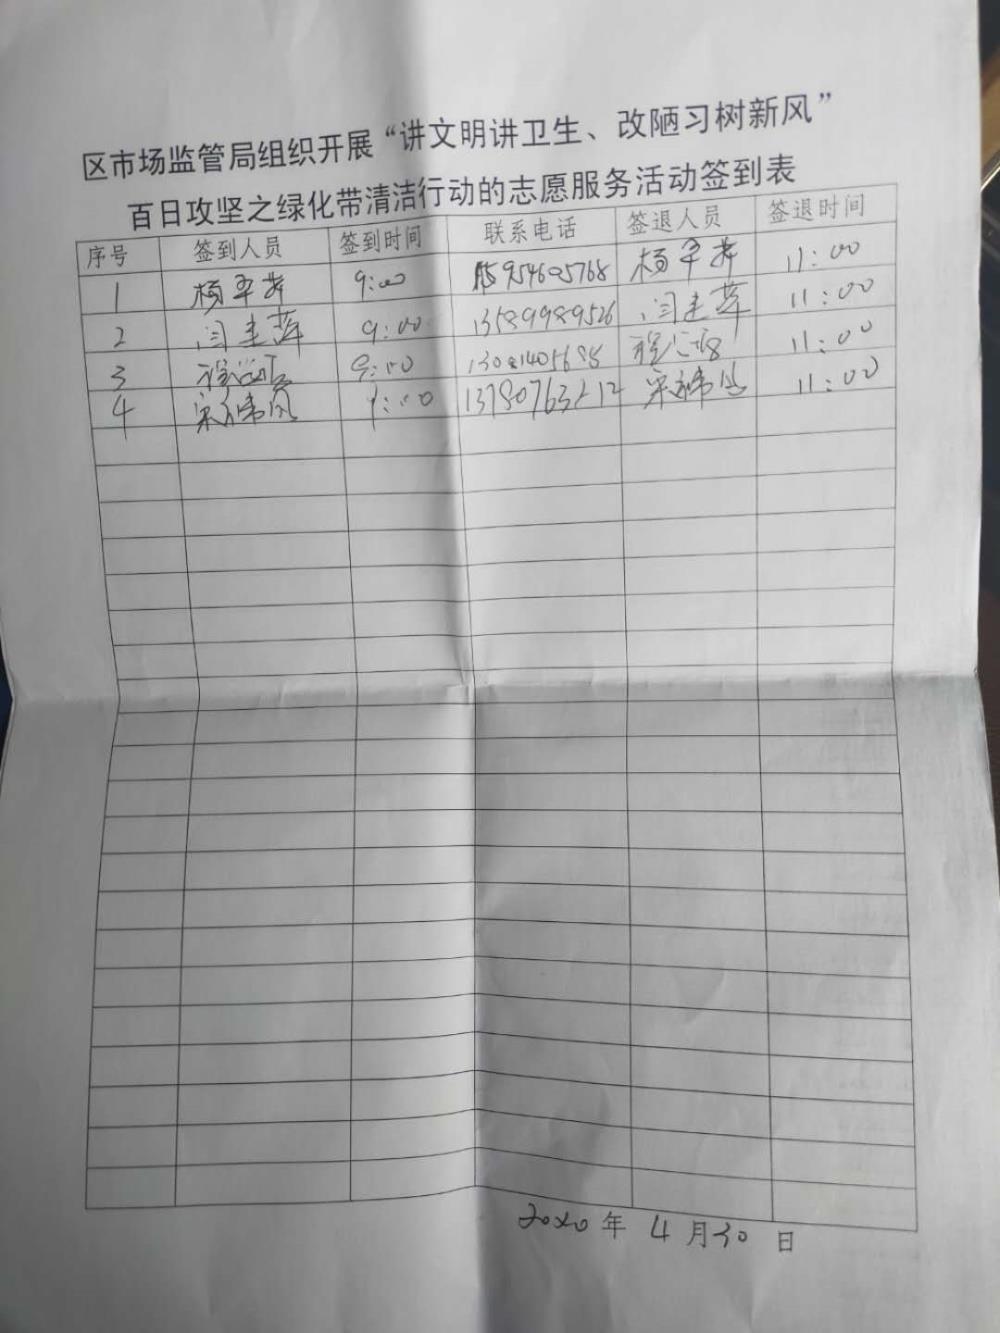 区市场监管局组织开展“讲文明讲卫生、改陋习树新风”
百日攻坚之绿化带清洁行动的志愿服务活动签到表
序号 签到人员 签到时间 联系电话 签退人员 签退时间
1 杨平 9:00 15954605768 杨平 11:00
2 闫建萍 9:00 13589989526 闫建萍 11:00
3 9:00 11:00
4 宋 9:00 宋 11:00
2020年4月30日